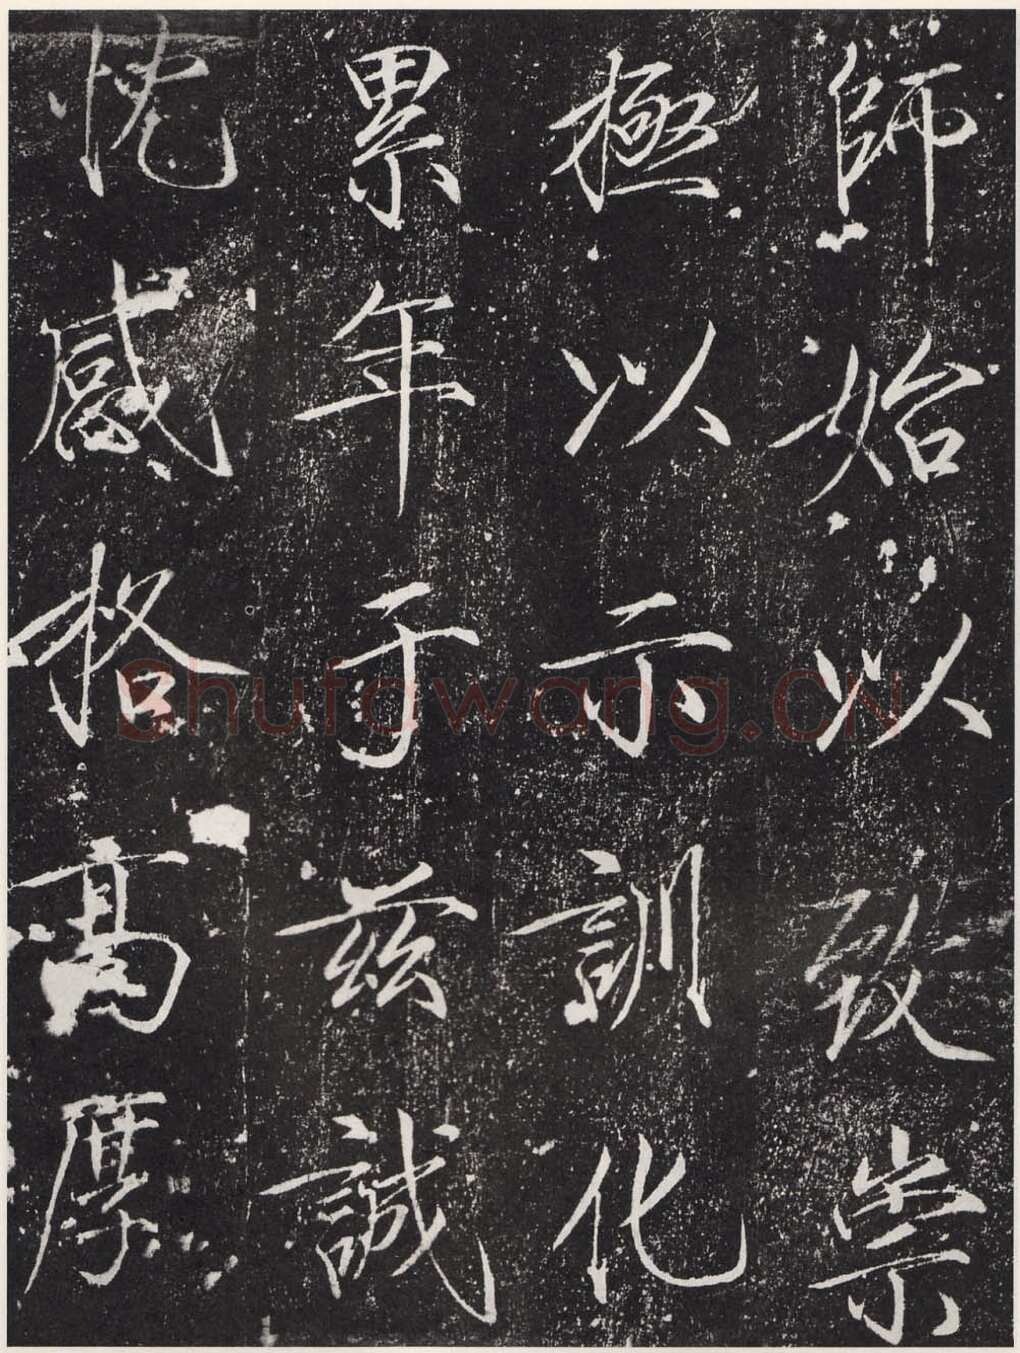 師始以致崇
極以示訓化
累年于兹誠
忱感格高厚
Shufawang.CN